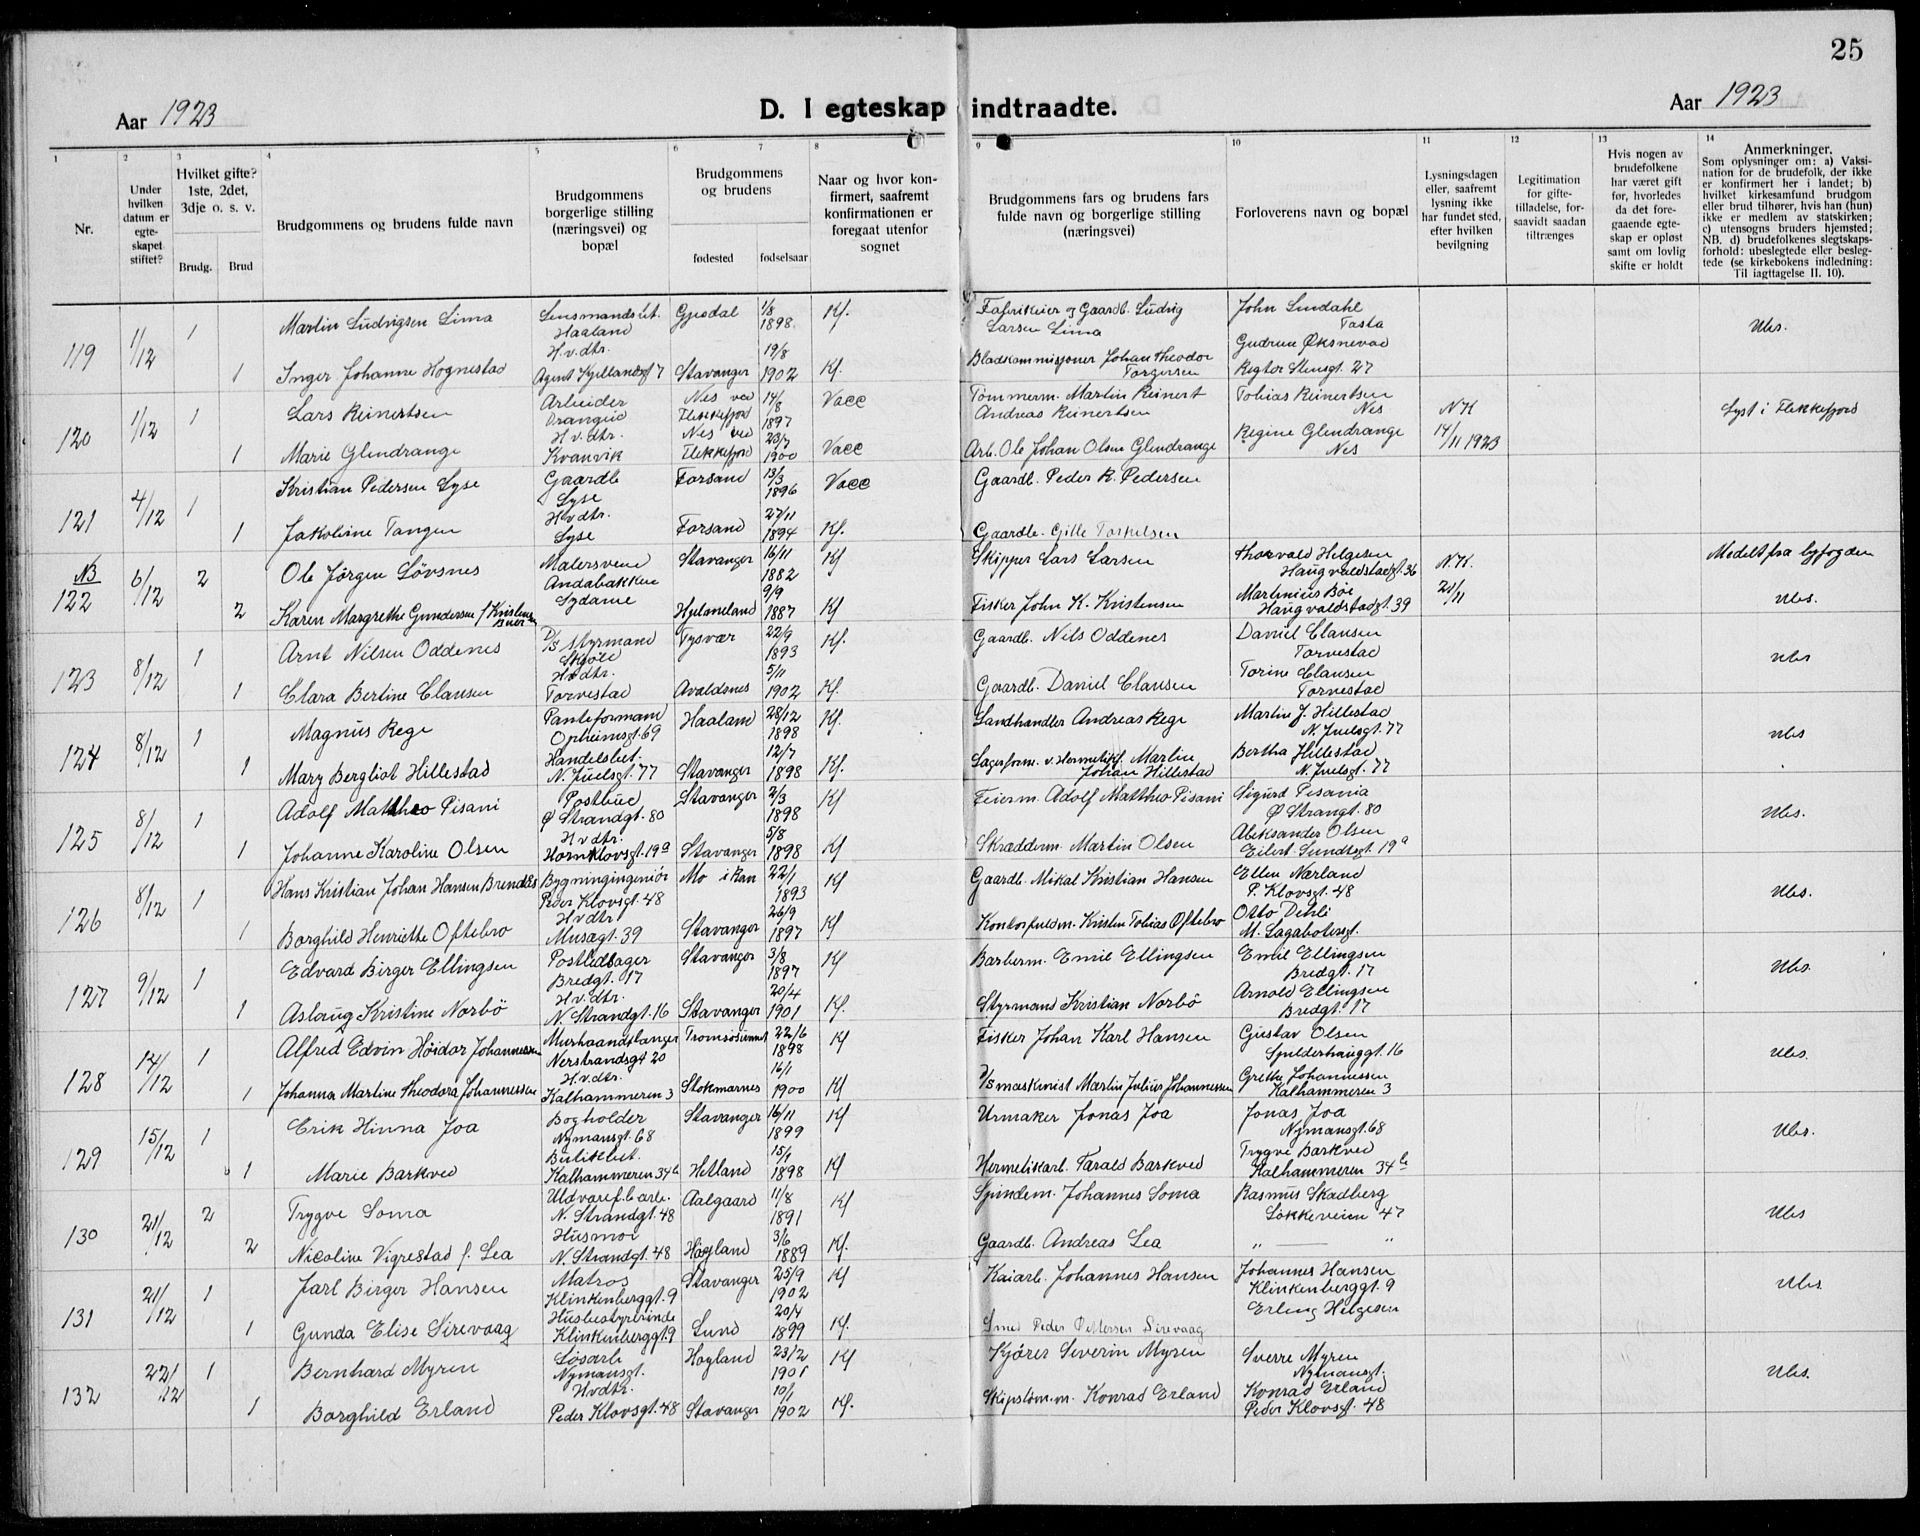 25
Aar 1923
D. I egteskap indtraadte.
Aar 1923
1
Nr.
2
Under hvilken datum er egteskapet stiftet?
3
Hvilket gifte? 1ste, 2det, 3dje o. s. v.
Brudg.
Brud
4
Brudgommens og brudens fulde navn
5
Brudgommens borgerlige stilling (næringsvei) og bopæl
6
7
Brudgommens og brudens
fødested
fødselsaar
8
Naar og hvor konfirmert, saafremt konfirmationen er foregaat utenfor sognet
9
Brudgommens fars og brudens fars fulde navn og borgerlige stilling (næringsvei)
10
Forloverens navn og bopæl
11
Lysningsdagen eller, saafremt lysning ikke har fundet sted, efter hvilken bevilgning
12
Legitimation for giftetilladelse, forsaavidt saadan tiltrænges
13
Hvis nogen av brudefolkene har været gift før, hvorledes da det foregaaende egteskap er opløst samt om lovlig skifte er holdt
14
Anmerkninger.
Som oplysninger om: a) Vaksination for de brudefolk, der ikke er konfirmert her i landet; b) hvilket kirkesamfund brudgom eller brud tilhører, hvis han (hun) ikke er medlem av statskirken; c) utensogns bruders hjemsted; NB. d) brudefolkenes slegtskapsforhold: ubeslegtede eller beslegtede (se kirkebokens indledning: Til iagttagelse II. 10).
119 1/12 1 Martin Ludvigsen Lima Lensmandsbet. Haaland Gjesdal 1/8 1898 Kf. Fabrikeier og Gaardb. Ludvig Larsen Lima John Lindahl Tasta Ubs.
1 Inger Johanne Hognestad H.v.dtr. Agent Kjellandsgt 7 Stavanger 19/8 1902 Kf. Bladkommisjonær Johan Theodor Torgersen Gudrun Øksnevad Regtor Stensgt. 27
120 1/12 1 Lars Reinertsen Arbeider Drangeid Nes ved Flekkefjord 14/8 1897 Vacc Tømmerm. Martin Reinert Andreas Reinertsen Tobias Reinertsen Nes N K 14/11 1923 Lyst i Flekkefjord
1 Marie Glendrange H.v.dtr. Kvanvik Nes ved Flekkefjord 23/7 1900 Vacc Arb. Ole Johan Olsen Glendrange Regine Glendrange Nes
121 4/12 1 Kristian Pedersen Lyse Gaardb Lyse Forsand 13/3 1896 Vacc Gaardb. Peder R. Pedersen
1 Jakoline Tangen H.v.dtr. Lyse Forsand 27/11 1894 Kf. Gaardb. Gitle Torkelsen
NB 122 6/12 2 Ole Jörgen Lövsnes Malersvend Andabakken Stavanger 16/11 1882 Kf Skipper Lars Larsen Thorvald Helgesen Haugvaldstadgt. 36 N.K. 21/11 Medelt fra byfogden
2 Karen Margrethe Gundersen f Kristensen Sydame Hjelmeland 9/9 1887 Kf Fisker John K. Kristensen Martinius Bøe Haugvaldstadgt. 39 Ubs.
123 8/12 1 Arnt Nilsen Oddenes D/s styrmand Skjöld Tysvær 22/9 1893 Kf. Gaardb. Nils Oddenes Daniel Clausen Torvestad Ubs
1 Clara Bertine Clausen H.v.dtr. Torvestad Avaldsnes 5/11 1902 Kf. Gaardb. Daniel Clausen Torine Clausen Torvestad
124 8/12 1 Magnus Rege Panteformand Opheimsgt. 69 Haaland 28/12 1898 Kf. Landhandler Andreas Rege Martin J. Hillestad N. Juelsgt. 77 Ubs
1 Mary Bergliot Hillestad Handelsbet. N. Juelsgt. 77 Stavanger 12/7 1898 Kf. Lagerform. v. Hermetikf. Martin Johan Hillestad Bertha Hillestad N. Juelsgt. 77
125 8/12 1 Adolf Mattheo Pisani Postbud Ø Strandgt. 80 Stavanger 2/3 1898 Kf Feierm. Adolf Mattheo Pisani Sigurd Pisania Ø Strangt. 80 Ubs.
1 Johanne Karoline Olsen H.v.dtr. Hornklovsgt. 19a Stavanger 5/8 1898 Kf Skrædderm. Martin Olsen Aleksander Olsen Eilert Sundtsgt. 19a
126 8/12 1 Hans Kristian Johan Hansen Brendås Bygningingeniør Peder Klovsgt. 48 Mo i Ran 22/1 1893 Kf Gaardb. Mikal Kristian Hansen Ellen Nærland P. Klovsgt. 48 Ubs.
1 Borghild Henriette Oftebro H.v.dtr. Musægt. 39 Stavanger 26/9 1897 Kf Kontorfuldm. Kristen Tobias Oftebro Otto Dehli M. Lagabotersgt.
127 9/12 1 Edvard Birger Ellingsen Postledsager Bredgt. 17 Stavanger 3/8 1897 Kf Barberm. Emil Ellingsen Emil Ellingsen Bredgt. 17 Ubs.
1 Aslaug Kristine Norbö H.v.dtr. N. Strandgt. 16 Stavanger 20/4 1901 Kf. Styrmand Kristian Norbö Arnold Ellingsen Bredgt. 17
128 14/12 1 Alfred Edvin Höidar Johannessen Murhaandslanger Nerstrandsgt 20 Tromsösundet 22/6 1898 Kf Fisker Johan Karl Hansen Gustav Olsen Spilderhauggt. 16 Ubs.
1 Johanna Martine Theodora Johannessen H.v.dtr. Kalhammeren 3 Stokmarnes 16/1 1900 Kf D/s maskinist Martin Julius Johannessen Grethe Johannessen Kalhammeren 3
129 15/12 1 Erik Hinna Joa Bogholder Nymansgt. 68 Stavanger 16/11 1899 Kf Urmaker Jonas Joa Jonas Joa Nymansgt. 68 Ubs.
1 Marie Barkved Butikbet. Kalhammeren 34b Hetland 15/1 1898 Kf Hermetikarb. Tarald Barkved Trygve Barkved Kalhammeren 34b
130 21/12 2 Trygve Soma Uldvaref.b.arb. N. Strandgt. 48 Aalgaard 11/8 1891 Kf Spindem. Johannes Soma Rasmus Skadberg Løkkeveien 47 Ubs
2 Nicoline Vigrestad f. Lea Husmor N. Strandgt. 48 Högland 3/6 1889 Kf. Gaardb. Andreas Lea " — "
131 21/12 1 Jarl Birger Hansen Matros Klinkenberggt. 9 Stavanger 25/9 1902 Kf Kaiarb. Johannes Hansen Johannes Hansen Klinkenberggt. 9 Ubs.
1 Gunda Elise Sirevaag Husbestyrerinde Klinkenberggt. 9 Lund 20/4 1899 Kf. Smed Peder Pettersen Sirevaag Erling Helgesen
132 22/12 1 Bernhard Myren Løsarb Nymansgt. Høyland 23/2 1901 Kf Kjører Severin Myren Sverre Myren Nymansgt. Ubs.
1 Borghild Erland H.v.dtr. Peder Klovsgt. 48 Stavanger 10/1 1902 Kf. Skipstöm.m. Konrad Erland Konrad Erland Peder Klovsgt. 48